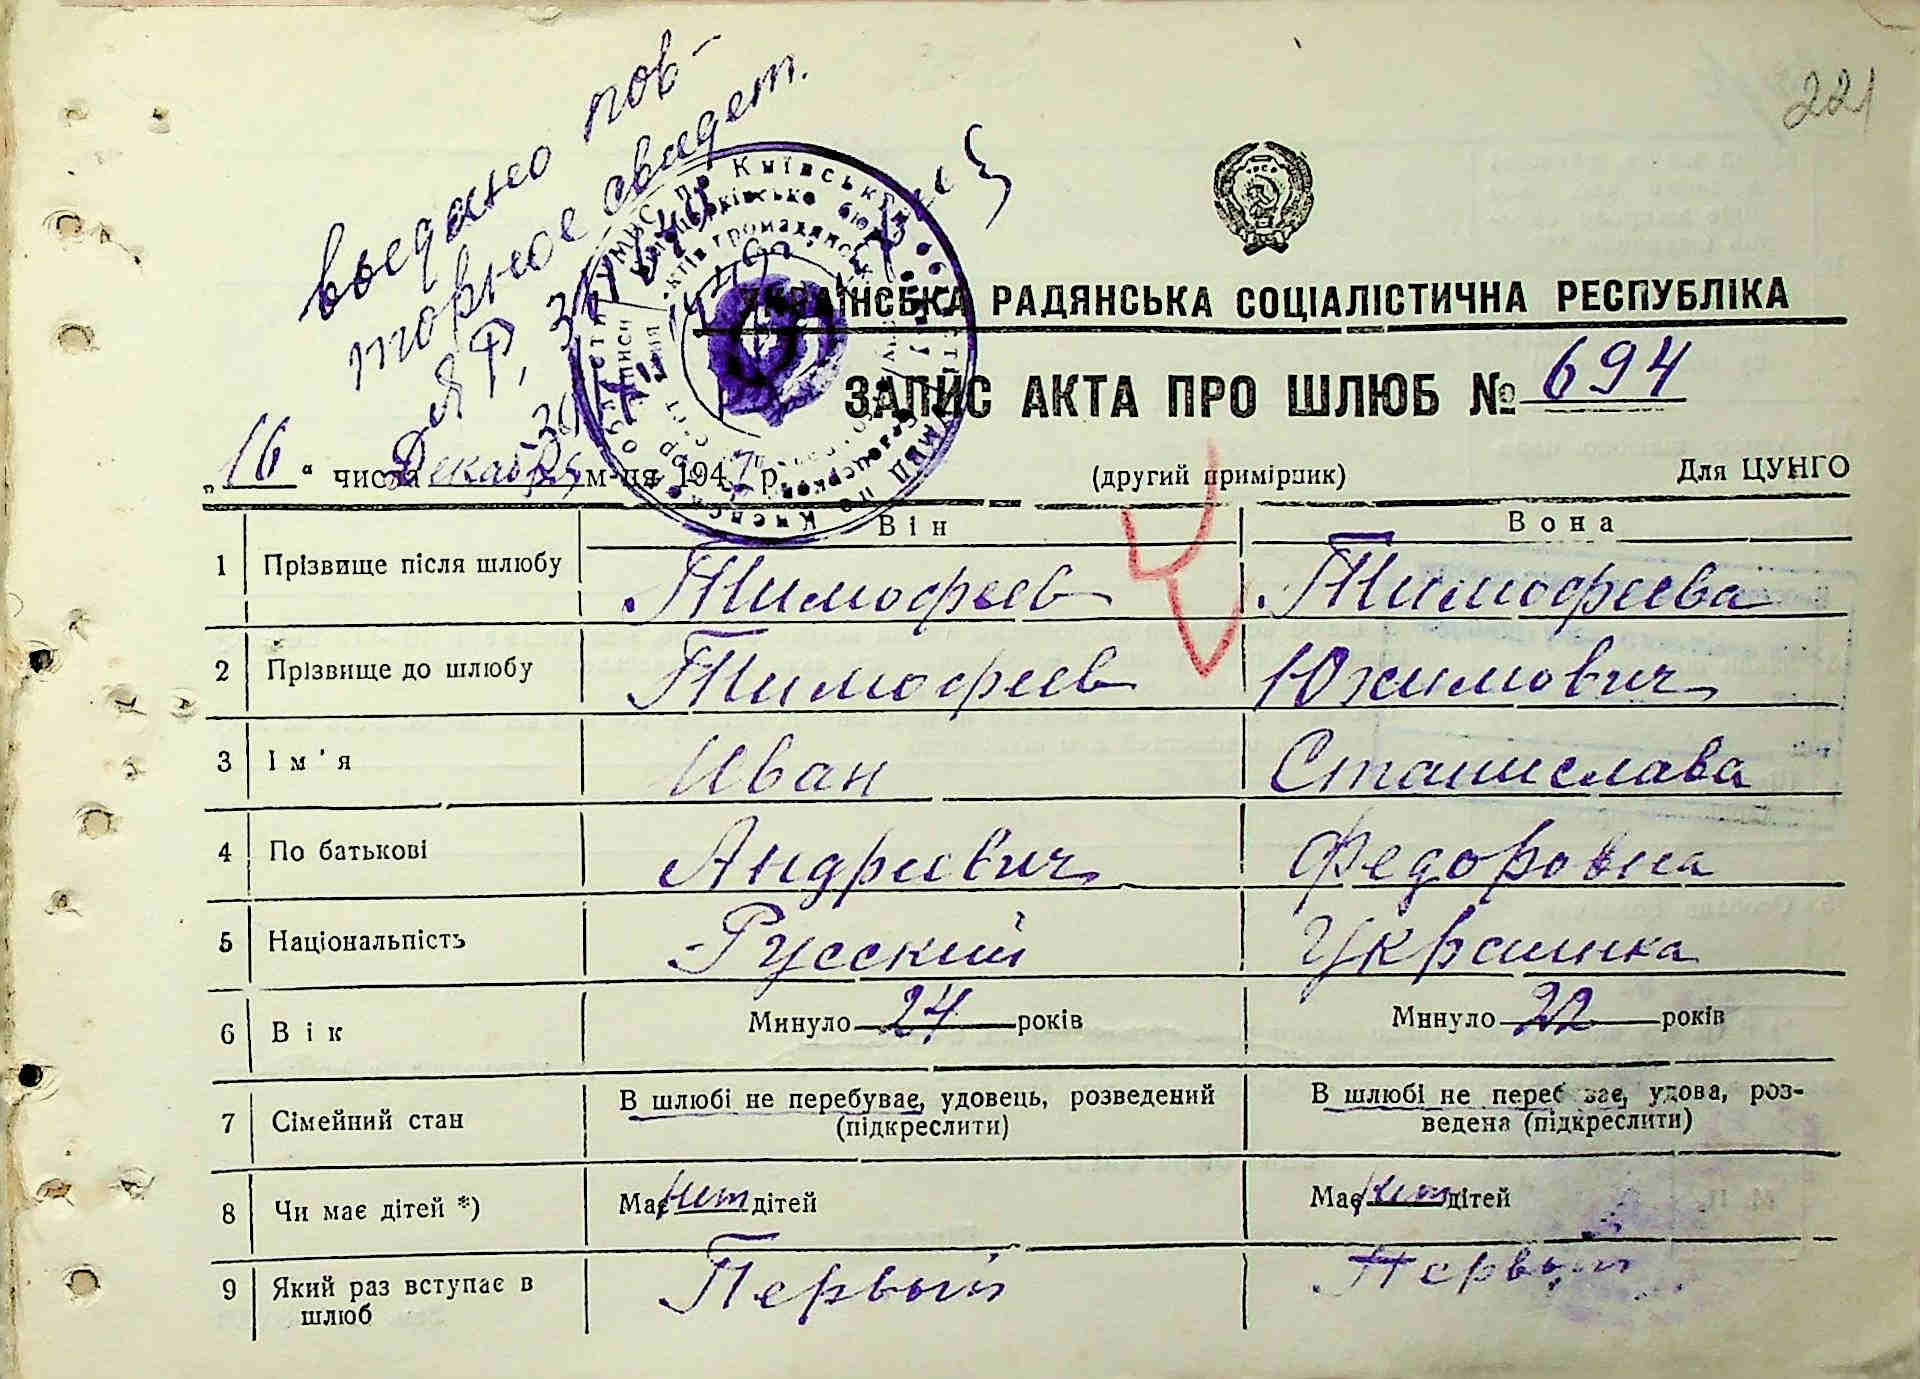 221
выедано пов-
торное свидет.
УКРАЇНСЬКА РАДЯНСЬКА СОЦІАЛІСТИЧНА РЕСПУБЛІКА
ЗАПИС АКТА ПРО ШЛЮБ № 694
„16“ числа Декабря м-ця 1947 р. (другий примірник) Для ЦУНГО
Він Вона
1 Прізвище після шлюбу Тимофеев Тимофеева
2 Прізвище до шлюбу Тимофеев Южимович
3 Ім'я Иван Станислава
4 По батькові Андреевич Федоровна
5 Національність Русский Украинка
6 Вік Минуло 24 років Минуло 22 років
7 Сімейний стан В шлюбі не перебуває, удовець, розведений (підкреслити) В шлюбі не перебуває, удова, роз-
ведена (підкреслити)
8 Чи має дітей *) Має нет дітей Має нет дітей
9 Який раз вступає в Первый Первый
шлюб